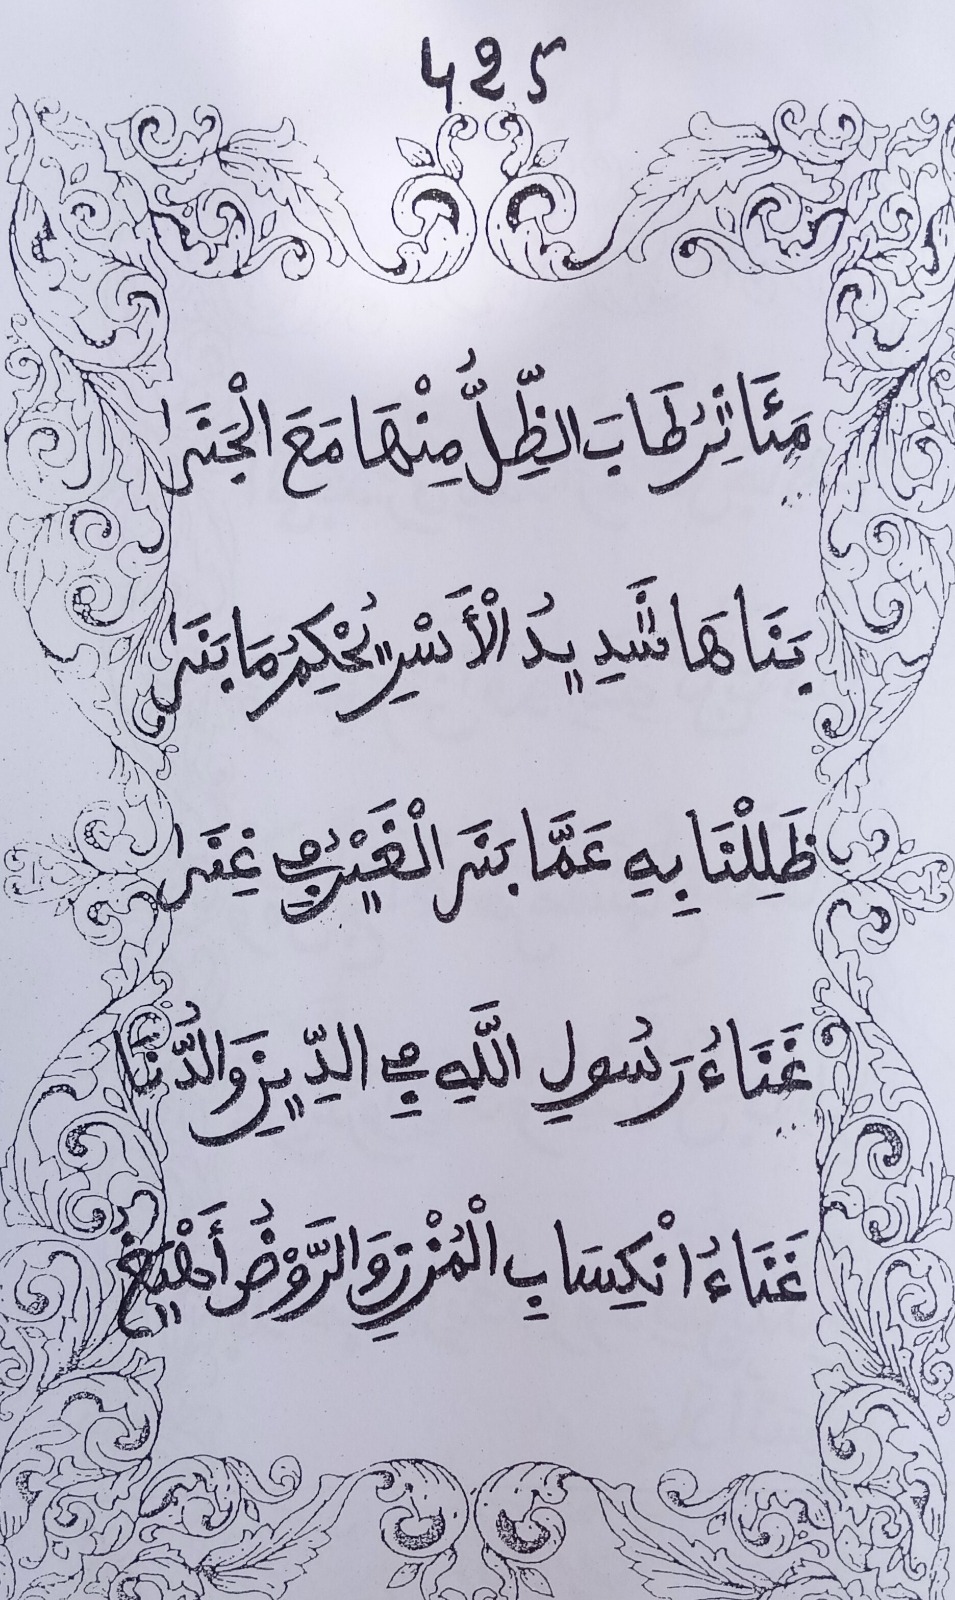 425
مَئَاثِرُ طَابَ الظِّلُّ مِنْهَا مَعَ الْجَنَى
بَنَاهَا شَدِيدُ الْأَسْرِ يُحْكِمُ مَا بَنَى
ظَلِلْنَا بِهِ عَمَّا بَنَى الْغَيْرُ فِي غِنَى
غَنَاءُ رَسُولِ اللَّهِ فِي الدِّينِ وَالدُّنَا
غَنَاءُ انْسِكَابِ الْمُزْنِ وَالرَّوْضُ